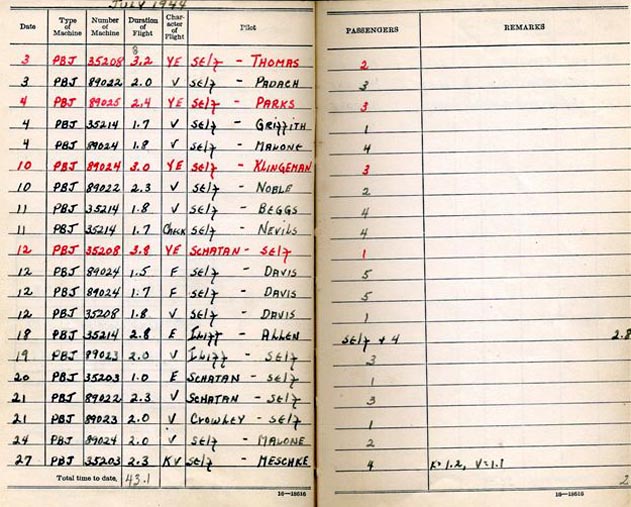 JULY 1944
Date Type of Machine Number of Machine Duration of Flight Character of Flight Pilot PASSENGERS REMARKS
8
3 PBJ 35208 3.2 YE Self - THOMAS 2
3 PBJ 89022 2.0 V Self - PADACH 3
4 PBJ 89025 2.4 YE Self - PARKS 3
4 PBJ 35214 1.7 V Self - GRIFFITH 1
4 PBJ 89024 1.8 V Self - MALONE 4
10 PBJ 89024 3.0 YE Self - KLINGEMAN 3
10 PBJ 89022 2.3 V Self - NOBLE 2
11 PBJ 35214 1.8 V Self - BEGGS 4
11 PBJ 35214 1.7 Check Self - NEVILS 4
12 PBJ 35208 3.8 YE SCHATAN - Self 1
12 PBJ 89024 1.5 F Self - DAVIS 5
12 PBJ 89024 1.7 F Self - DAVIS 5
12 PBJ 35208 1.8 V Self - DAVIS 1
18 PBJ 35214 2.8 E Iliff - ALLEN Self + 4 2.8
19 PBJ 89023 2.0 V Iliff - Self 3
20 PBJ 35203 1.0 E SCHATAN - Self 1
21 PBJ 89022 2.3 V SCHATAN - Self 3
21 PBJ 89023 2.0 V CROWLEY - Self 1
24 PBJ 89024 2.0 V Self - MALONE 2
27 PBJ 35203 2.3 KV Self - MESCHKE 4 K=1.2, V=1.1
Total time to date, 43.1 2
16—18616 16—18616